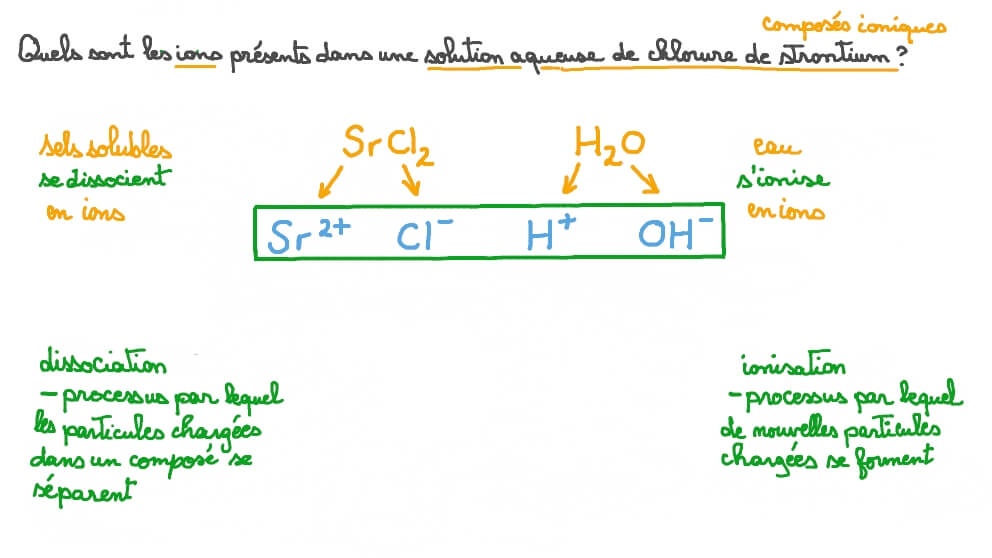 composés ioniques
Quels sont les ions présents dans une solution aqueuse de chlorure de strontium ?
sels solubles
se dissocient
en ions
SrCl₂
H₂O
eau
s'ionise
en ions
Sr²⁺ Cl⁻ H⁺ OH⁻
dissociation
– processus par lequel
les particules chargées
dans un composé se
séparent
ionisation
– processus par lequel
de nouvelles particules
chargées se forment